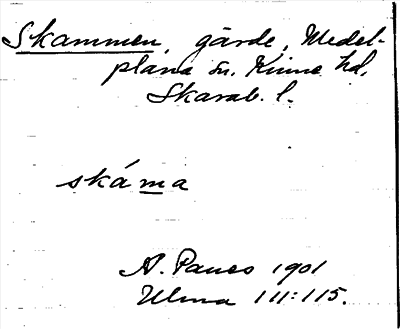 Skammen, gärde, Medel-
plana sn. Kinne hd.
Skarab. l.
skáma
A. Paues 1901
Ulma 111:115.